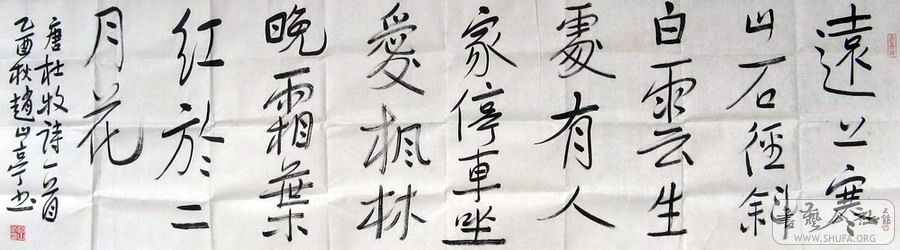 遠上寒
山石徑斜
白雲生
處有人
家停車坐
愛楓林
晚霜葉
紅於二
月花
唐杜牧詩一首
乙酉秋趙山亭书
WWW.SHUFA.ORG